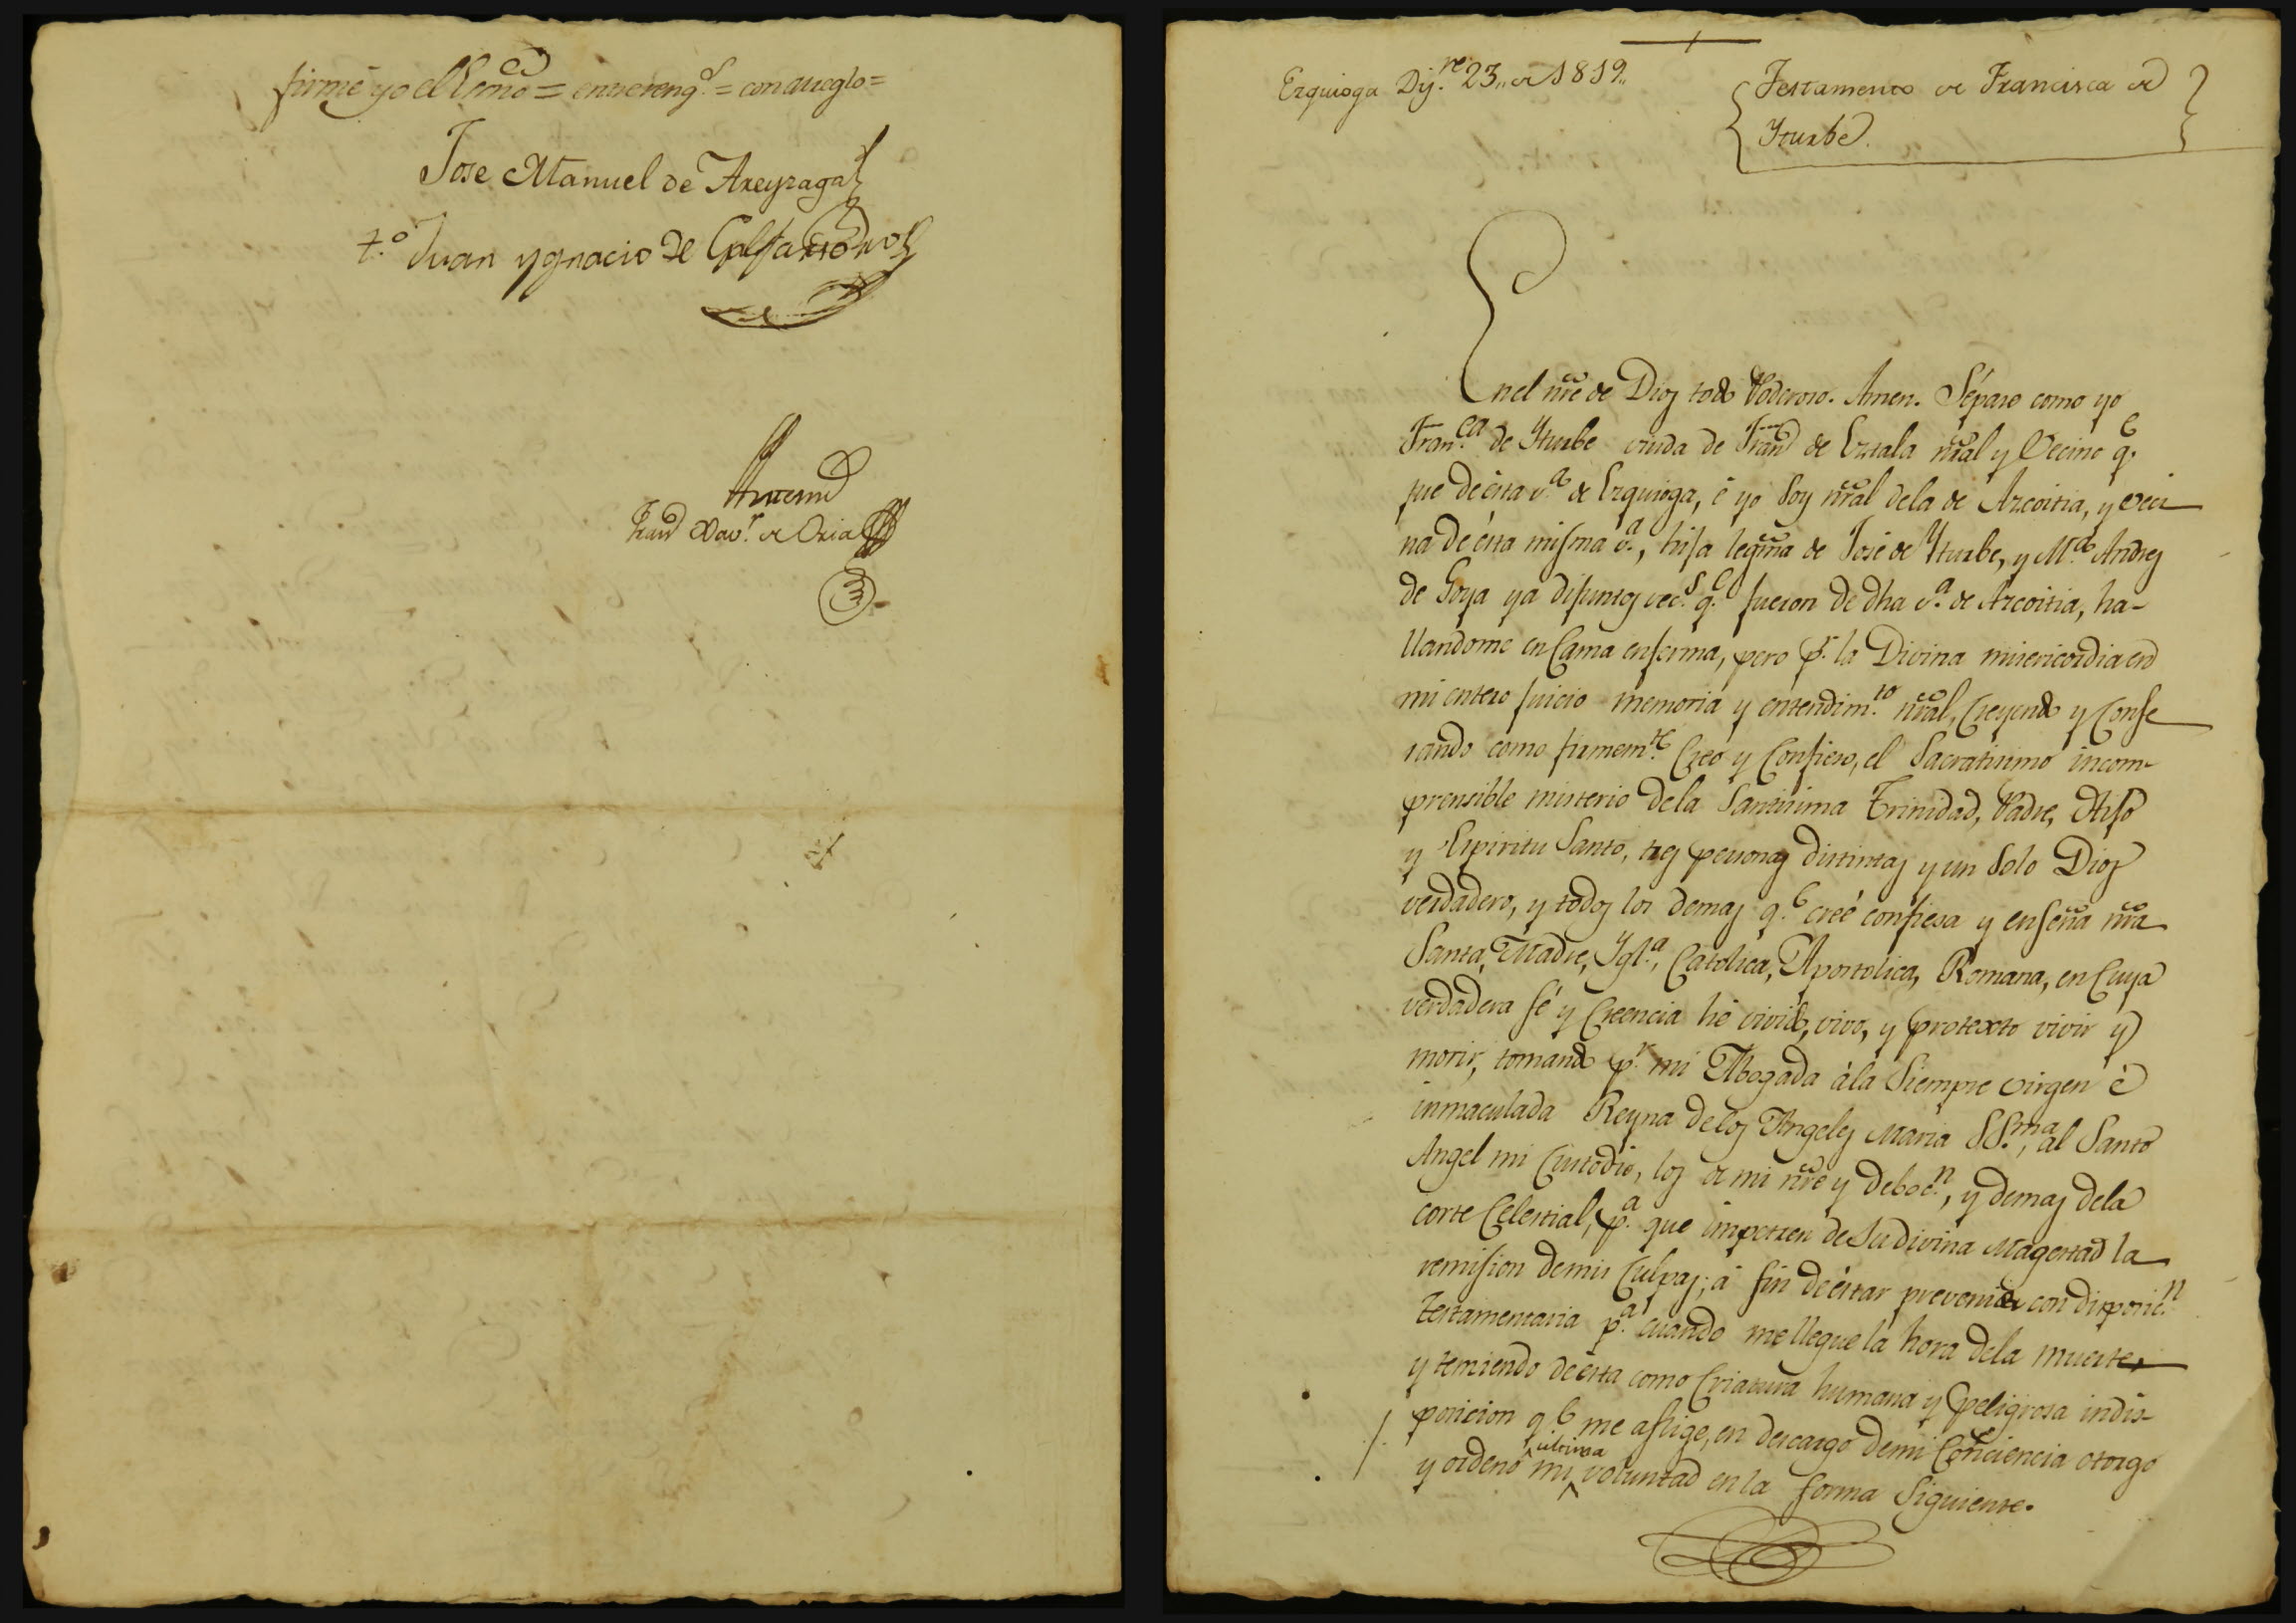 firmé yo el Esno = entrereng.s = con arreglo =
Jose Manuel de Areyzaga
t.o Juan ygnacio de
Antemi
Fran.co Xav.r de Oria
Ezquioga Diz.re 23,, de 1819,,
Testamento de Francisca de
Yturbe
Enel nre de Dios todo Poderoso. Amen. Sépase como yo
Fran.ca de Yturbe viuda de Fran.co de nral y Vecino q.e
fue de ésta v.a de Ezquioga, é yo soy nral dela de Azcoitia, y veci
na de ésta misma v.a, hija legma de José de Yturbe, y M.a Andres
de Goya ya difuntos vec.s q.e fueron de dha v.a de Azcoitia, ha-
llandome en Cama enferma, pero p.r la Divina misericordia en
mi entero juicio memoria y entendim.to nral, Creyendo y Confe
sando como firmem.te Creo y Confieso, el Sacratisimo incom-
prensible misterio dela Santisima Trinidad, Padre, Hijo
y Espiritu Santo, tres personas distintas y un solo Dios
verdadero, y todos los demas q.e creé confiesa y enseña nra
Santa, Madre, Ygl.a, Catolica, Apostolica, Romana, en Cuya
verdadera fé y Creencia hé vivido, vivo, y protexto vivir y
morir, tomando p.r mi Abogada á la Siempre virgen é
inmaculada Reyna delos Angeles Maria SS.ma, al Santo
Angel mi Custodio, los de mi nre y deboc.n, y demas dela
corte Celestial, p.a que impetren de Su divina Magestad la
remision demis Culpas; á fin de éstar prevenida con disposic.n
testamentaria p.a cuando me llegue la hora dela muerte,
y temiendo de ésta como Criatura humana y peligrosa indis-
posicion q.e me aflige, en descargo demi Conciencia otorgo
y ordeno mi ultima voluntad en la forma Siguiente.